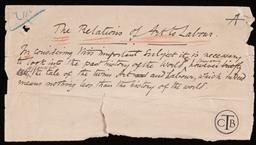 A
The Relations of Art to Labour.
In considering this important subject it is necessary
to look into the past history of the World,
the tale of the twins Art and Labour, which indeed
means nothing less than the history of the world.
CJB